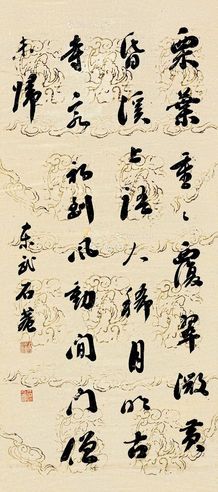 栗葉重〻覆翠微黃
昏溪上語人稀月明古
寺客初到風動閒門僧
未歸
東武石菴